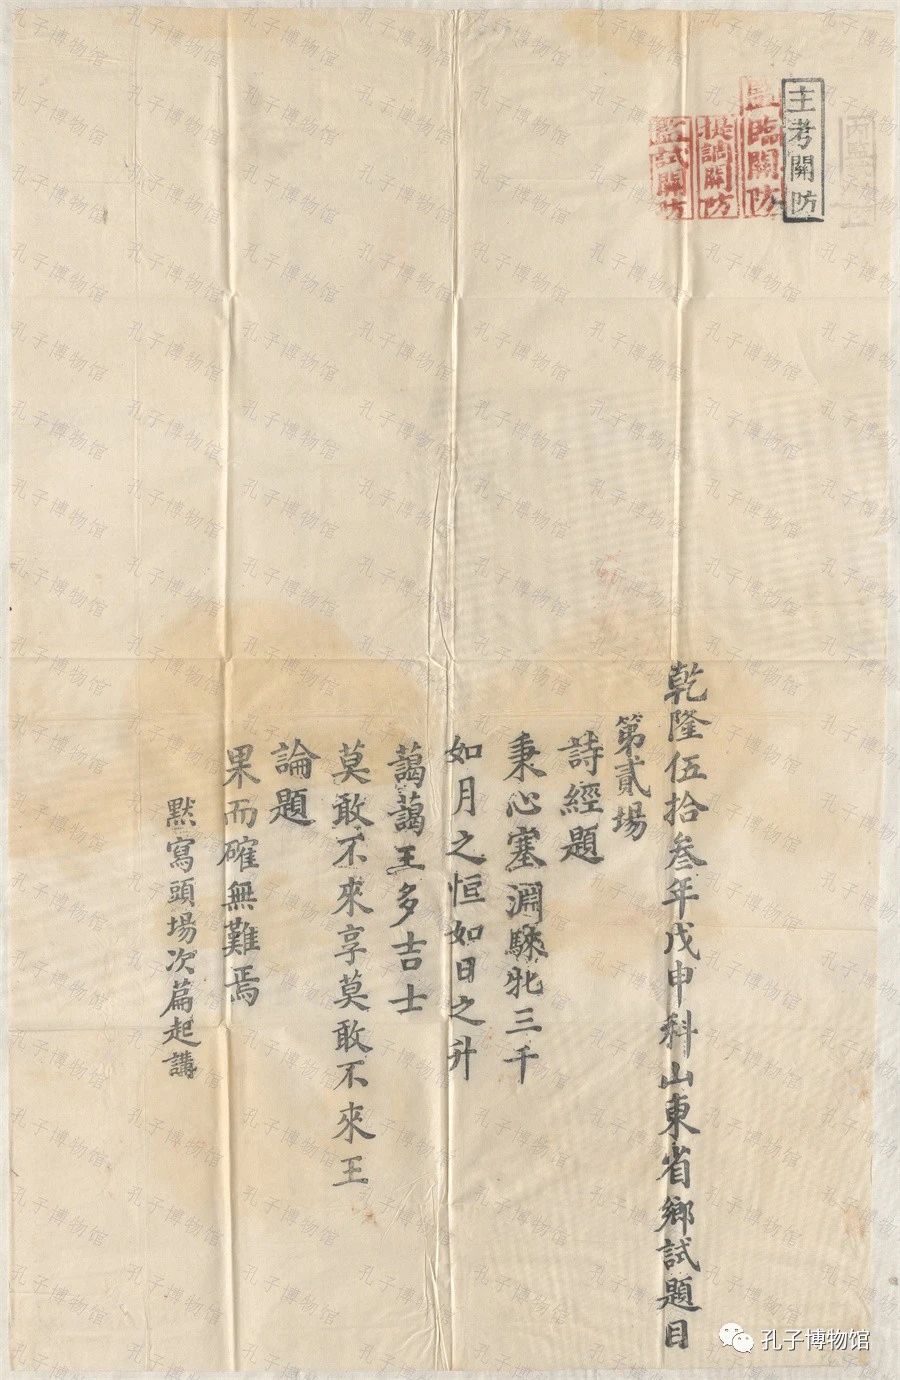 主考關防
監臨關防
提調關防
監試關防
乾隆伍拾叁年戊申科山東省鄉試題目
第貳場
詩經題
秉心塞淵騋牝三千
如月之恒如日之升
藹藹王多吉士
莫敢不來享莫敢不來王
論題
果而確無難焉
默寫頭場次篇起講
孔子博物馆